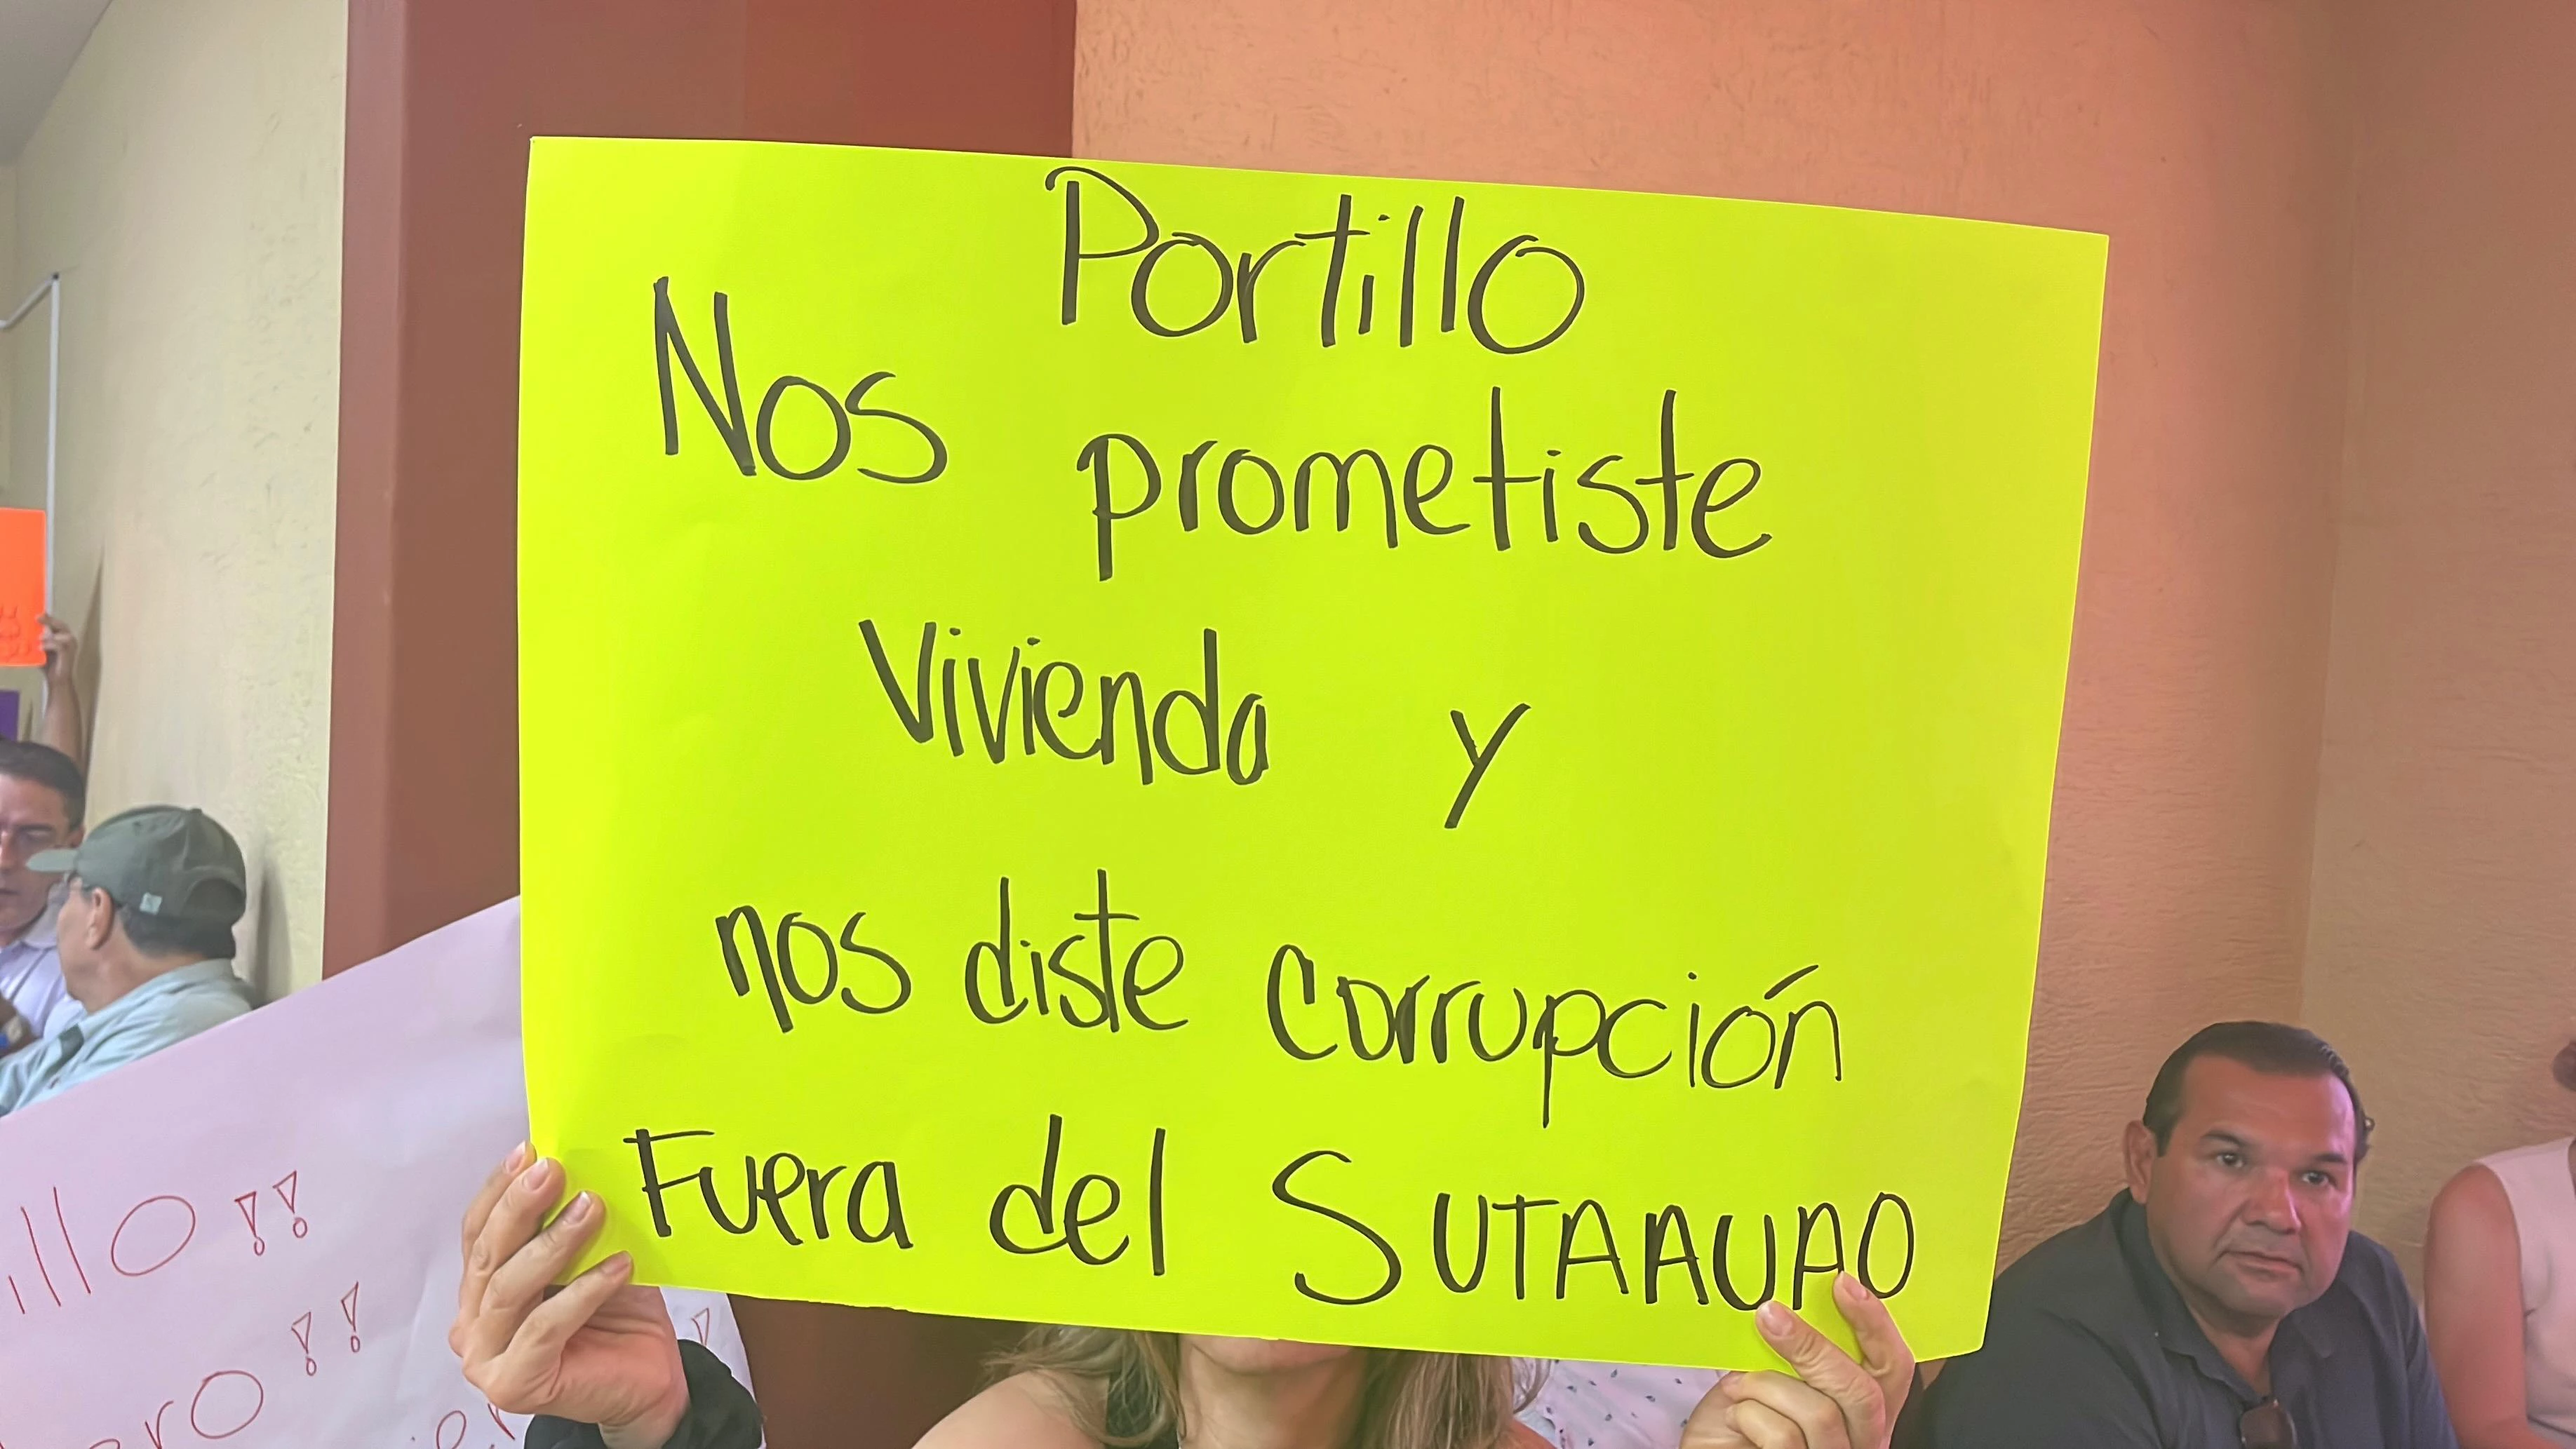 Portillo
Nos prometiste
Vivienda y
nos diste corrupción
Fuera del SUTAAUAO
illo!!
ero!!